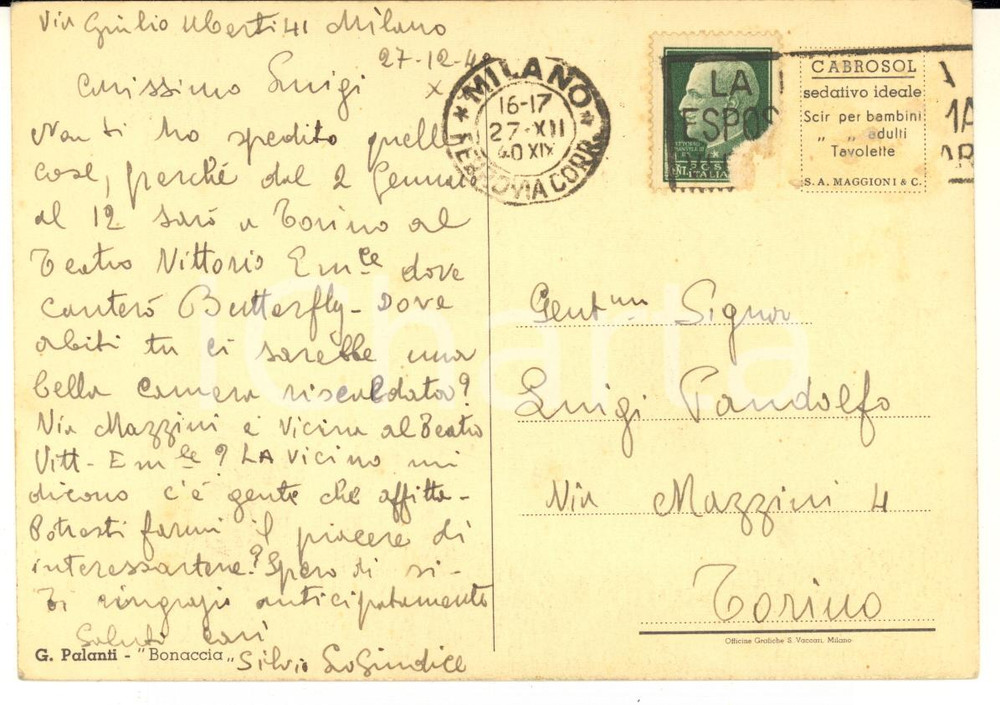 Via Giulio Uberti 41 Milano
27-12-40
Carissimo Luigi x
Non ti ho spedito quelle
cose, perché dal 2 Gennaio
al 12 sarò a Torino al
Teatro Vittorio Em.le dove
canterò Butterfly - Dove
abiti tu ci sarebbe una
bella camera riscaldata?
Via Mazzini è vicina al Teatro
Vitt - Em.le? LA vicino mi
dicono c'è gente che affitta -
Potresti farmi il piacere di
interessartene? Spero di si -
Ti ringrazio anticipatamente
Saluti cari
Silvio LoGiudice
G. Palanti - "Bonaccia"
MILANO
16-17
27·XII
40 XIX
FERROVIA CORR.
LA
ESPOS
ITALIA
CABROSOL
sedativo ideale
Scir per bambini
" " adulti
Tavolette
S. A. MAGGIONI & C.
Gent.mo Signor
Luigi Pandolfo
Via Mazzini 4
Torino
Officine Grafiche S. Vaccari, Milano
iCharta